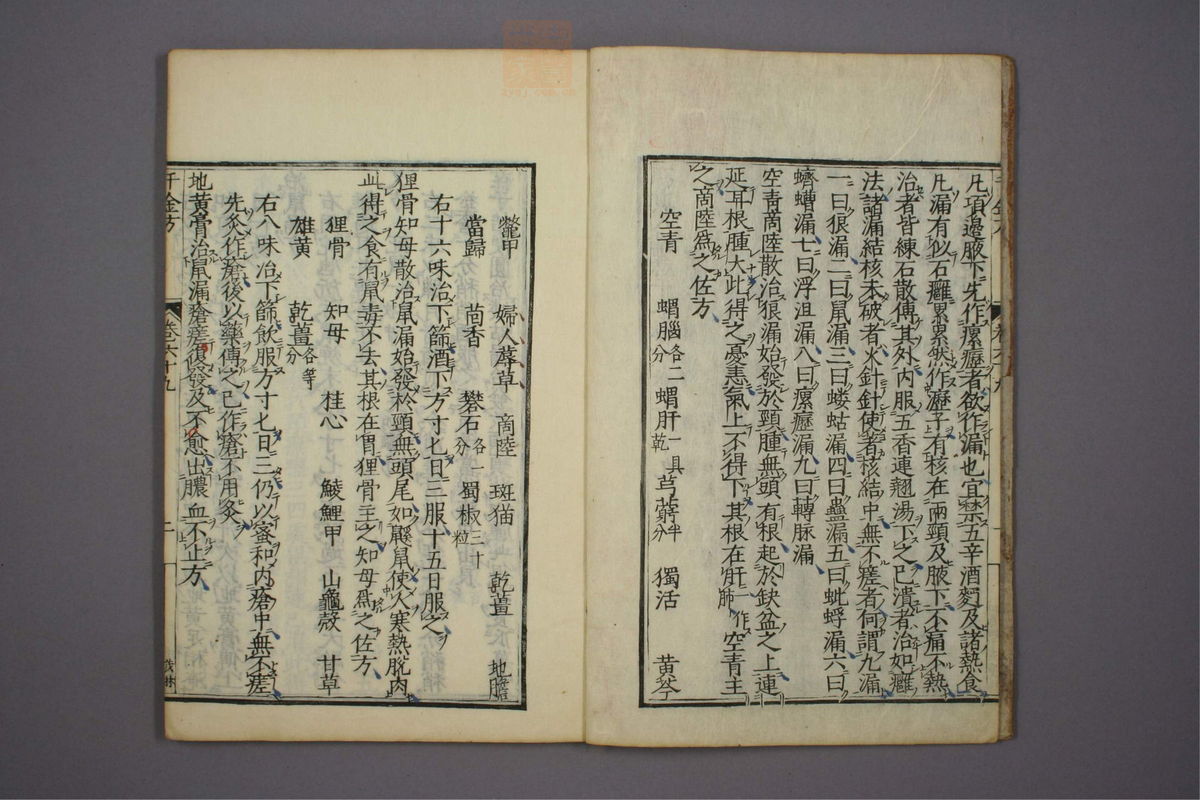 凡項邊腋下先作瘰癧者欲作漏也宜禁五辛酒麪及諸熱食
凡漏有似石癰累累然作瀝子有核在兩頸及腋下不痛不熱
治者皆練石散傅其外内服五香連翹湯下之已潰者治如癰
法諸漏結核未破者火針針使著核結中無不瘥者何謂九漏
一曰狼漏二曰鼠漏三曰螻蛄漏四曰蠱漏五曰蚍蜉漏六曰
蠐螬漏七曰浮沮漏八曰瘰癧漏九曰轉脉漏
空青啇陸散治狼漏始發於頸腫無頭有根起於缺盆之上連
延耳根腫大此得之憂恚氣上不得下其根在肝一作肺空青主
之啇陸爲之佐方
空青 蝟腦各二分 蝟肝一具乾 芎藭半分 獨活 黄芩
鼈甲 婦人蓐草 啇陸 斑猫 乾薑 地膽
當歸 茴香 礬石各一分 蜀椒三十粒
右十六味治下篩酒下方寸七日三服十五日服之
狸骨知母散治鼠漏始發於頸無頭尾如鼷鼠使人寒熱脱肉
此得之食有鼠毒不去其根在胃狸骨主之知母爲之佐方
狸骨 知母 桂心 鯪鯉甲 山龜殻 甘草
雄黄 乾薑各等分
右八味治下篩飲服方寸七日三仍以蜜和内瘡中無不瘥
先灸作瘡後以藥傅之已作瘡不用灸
地黄膏治鼠漏瘡瘥復發及不愈出膿血不止方
千金方 卷六十九 二